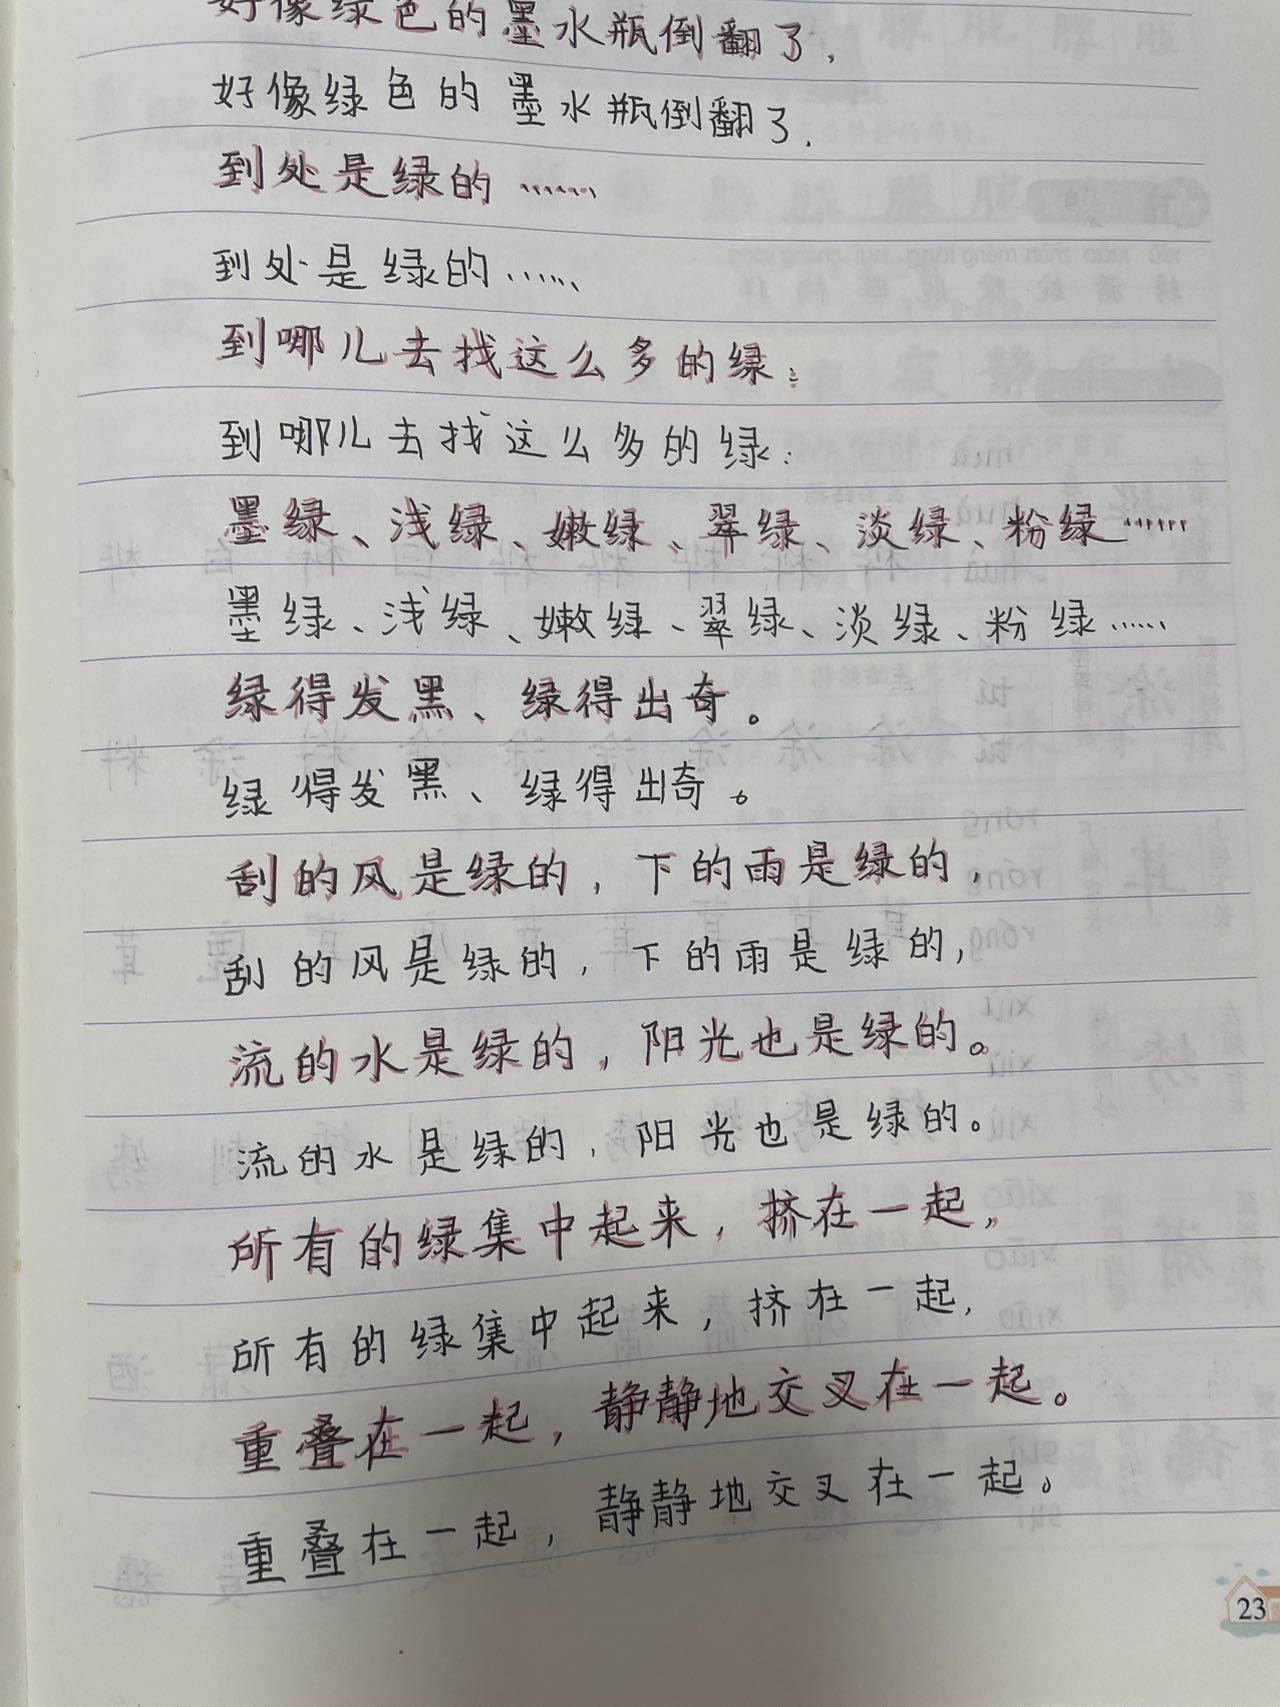 好像绿色的墨水瓶倒翻了，
好像绿色的墨水瓶倒翻了，
到处是绿的……
到处是绿的……
到哪儿去找这么多的绿：
到哪儿去找这么多的绿：
墨绿、浅绿、嫩绿、翠绿、淡绿、粉绿……
墨绿、浅绿、嫩绿、翠绿、淡绿、粉绿……
绿得发黑、绿得出奇。
绿得发黑、绿得出奇。
刮的风是绿的，下的雨是绿的，
刮的风是绿的，下的雨是绿的，
流的水是绿的，阳光也是绿的。
流的水是绿的，阳光也是绿的。
所有的绿集中起来，挤在一起，
所有的绿集中起来，挤在一起，
重叠在一起，静静地交叉在一起。
重叠在一起，静静地交叉在一起。
23